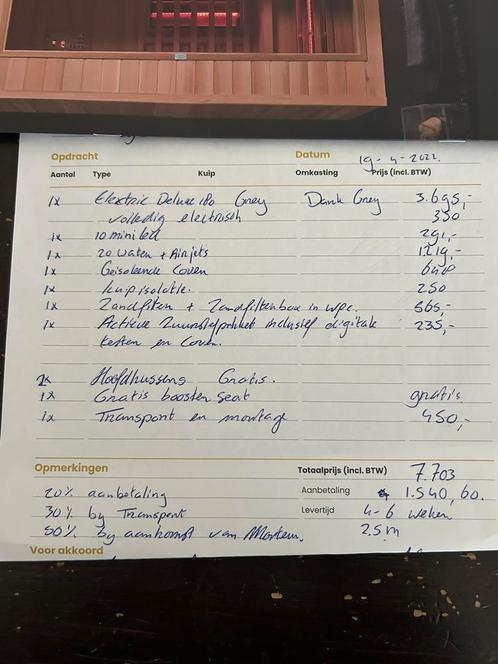 Opdracht Datum 19-4-2022.
Aantal Type Kuip Omkasting Prijs (incl. BTW)
1x Electric Deluxe 180 Grey Dark Grey 3.695,-
volledig electrisch 350
1x 10 mini led 291,-
1x 20 Water + Airjets 1.219,-
1x Geisoleerde Cover 648
1x kuip isolatie. 250
1x Zandfilter + Zandfilterbox in wpc. 565,-
1x Actieve Zuurstofpakket inclusief digitale 235,-
testen en Cover.
2x Hoofdkussens Gratis.
1x Gratis booster Seat gratis
1x Transport en montage 450,-
Opmerkingen Totaalprijs (incl. BTW) 7.703
20% aanbetaling Aanbetaling 1.540,60.
30% by Transport Levertijd 4-6 weken
50% by aankomst van 2.5m
Voor akkoord